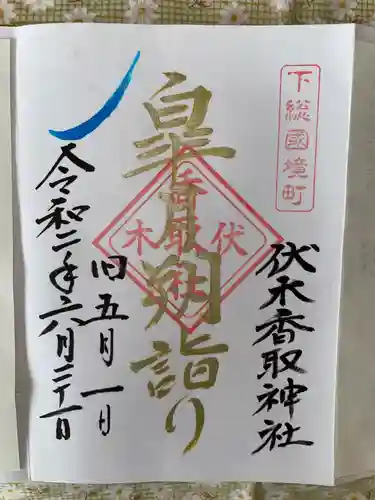 下総國境町
伏木香取神社
皐月朔詣り
伏木香取社
旧五月一日
令和二年六月二十一日